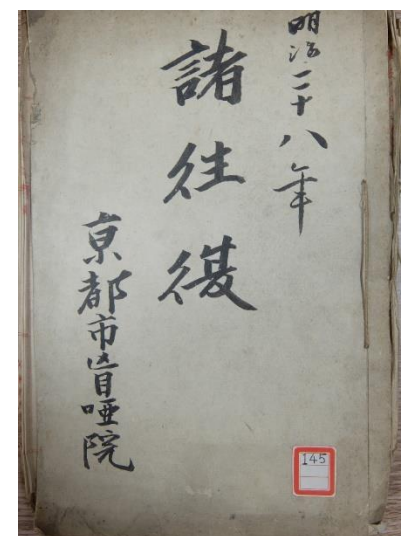 明治二十八年
諸往復
京都市盲唖院
145